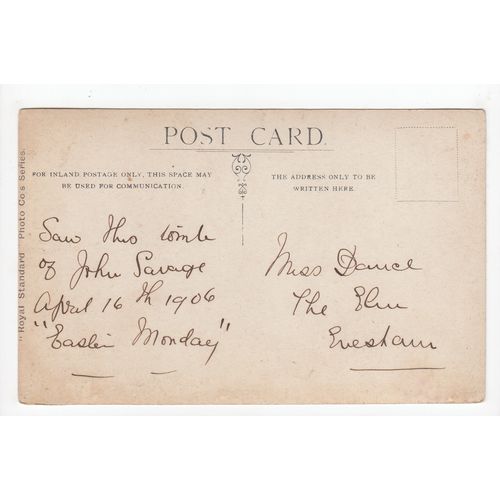 POST CARD.
FOR INLAND POSTAGE ONLY, THIS SPACE MAY
BE USED FOR COMMUNICATION.
THE ADDRESS ONLY TO BE
WRITTEN HERE.
"Royal Standard" Photo Co's Series.
Saw this tomb
of John Savage
April 16th 1906
"Easter Monday"
Miss Dance
The Elm
Evesham